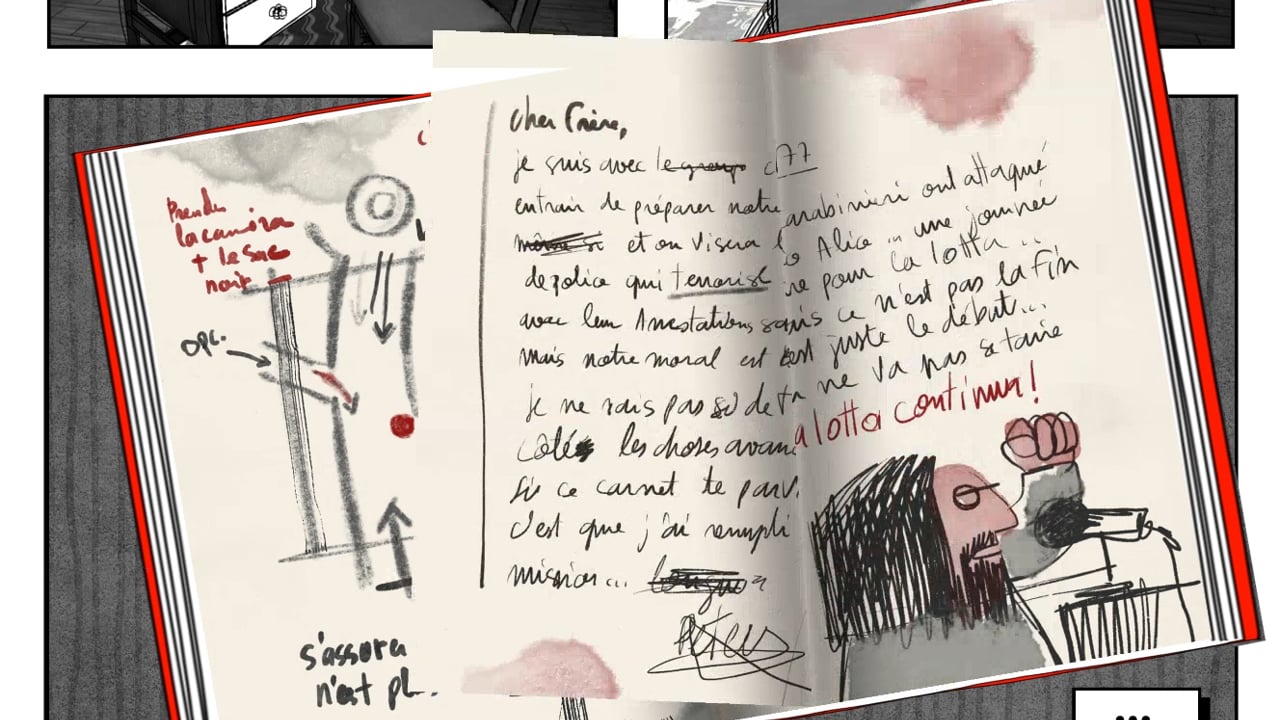 Prendre
la camoira
+ le sac
noir
OPL.
s'assurer
n'est pl..
Cher Frère,
je suis avec le groupe d77
entrain de préparer notre
même si et on visera l
de police qui terrorise
avec leur Arrestations sans
mais notre moral est
je ne sais pas si de t
Coté les choses avan
si ce carnet te parv
c'est que j'ai rempli
mission...
arabinieri ont attaqué
o Alice .. une journée
re pour la lotta ..
is ce n'est pas la fin
est juste le début...
n ne va pas se taire
a lotta continua!
•••